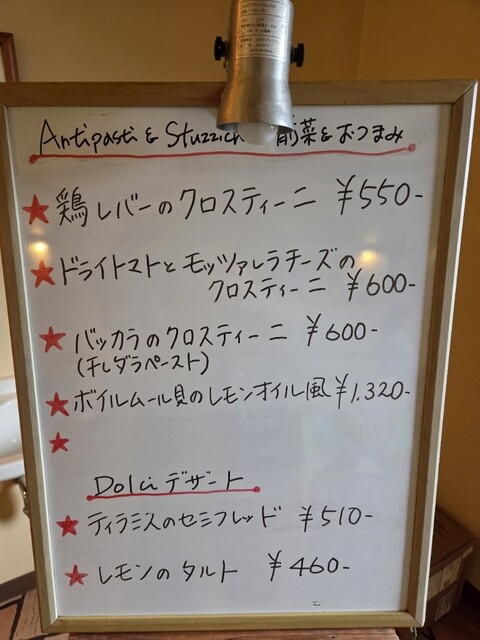 Antipasti & Stuzzich 前菜&おつまみ
★鶏レバーのクロスティーニ ¥550-
★ドライトマトとモッツァレラチーズの
クロスティーニ ¥600-
★バッカラのクロスティーニ ¥600-
(干しダラペースト)
★ボイルムール貝のレモンオイル風 ¥1,320-
★
Dolci デザート
★ティラミスのセミフレッド ¥510-
★レモンのタルト ¥460-